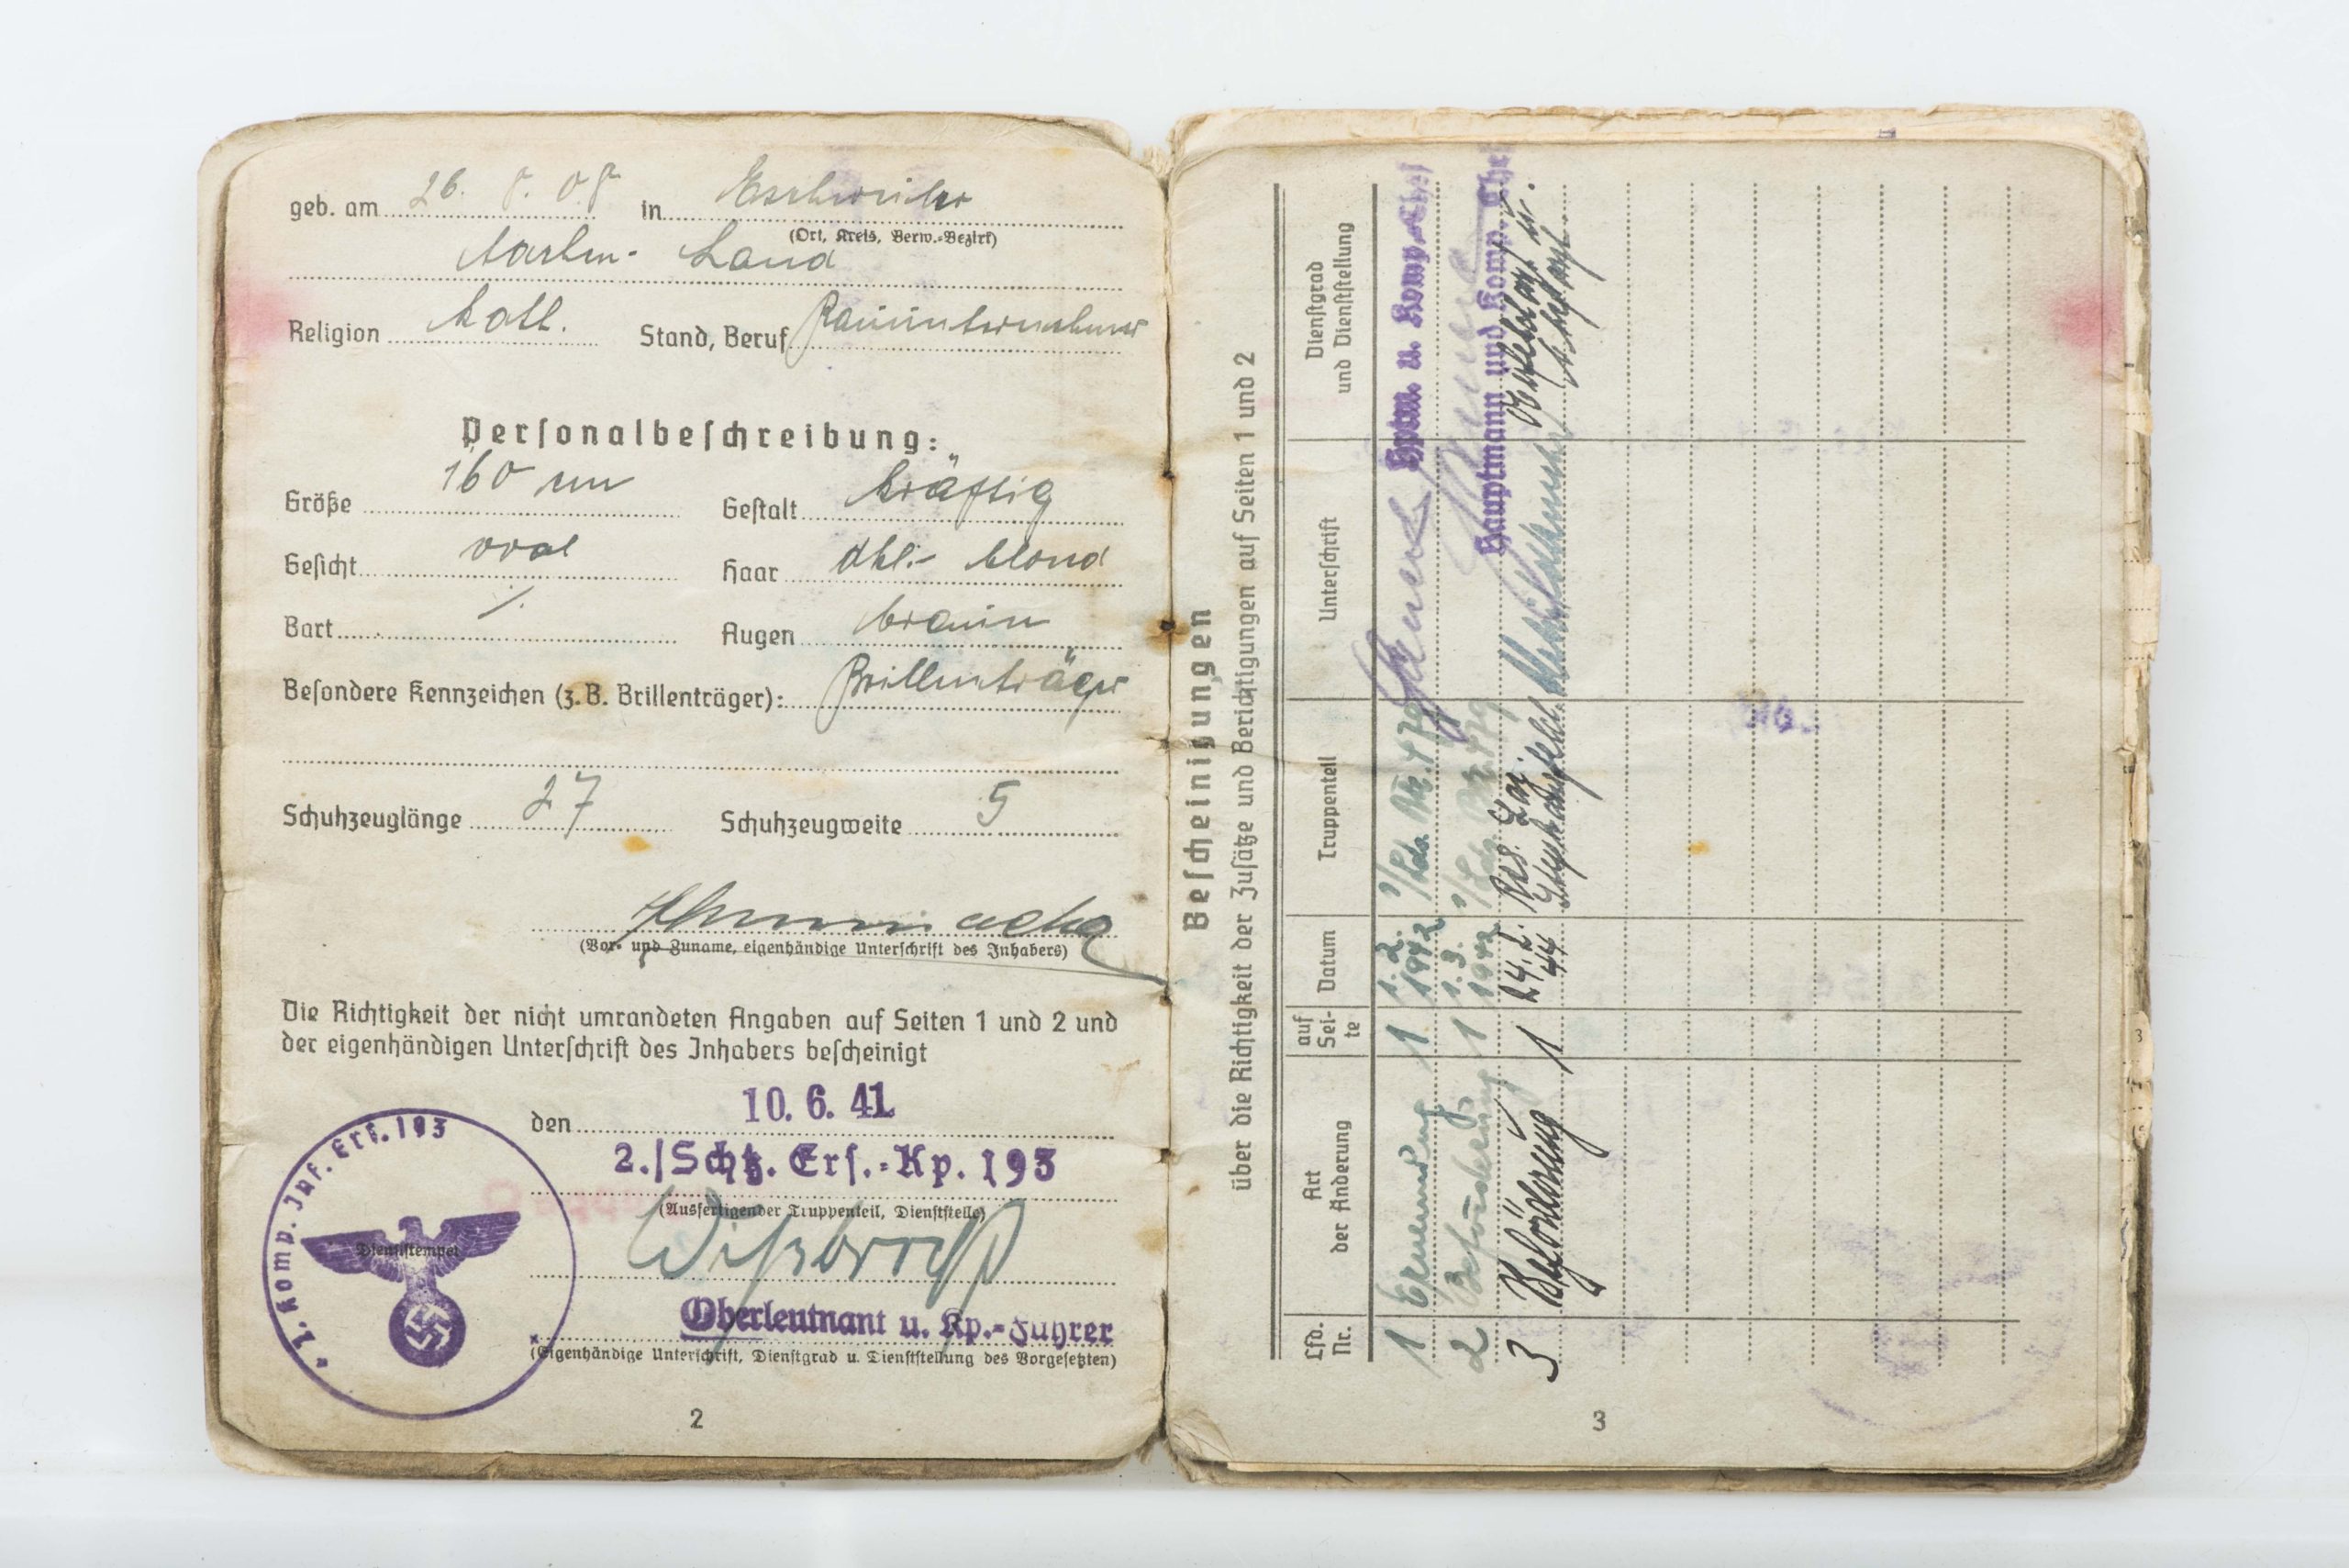 geb. am 26. 8. 08 in Eschweiler
(Ort, Kreis, Verw.-Bezirk)
Aachen- Land
Religion kath. Stand, Beruf Bauunternehmer
Personalbeschreibung:
Größe 160 cm Gestalt kräftig
Gesicht oval Haar dkl.- blond
Bart ./. Augen braun
Besondere Kennzeichen (z. B. Brillenträger): Brillenträger
Schuhzeuglänge 27 Schuhzeugweite 5
(Vor- und Zuname, eigenhändige Unterschrift des Inhabers)
Die Richtigkeit der nicht umrandeten Angaben auf Seiten 1 und 2 und
der eigenhändigen Unterschrift des Inhabers bescheinigt
den 10. 6. 41
2./Schtz. Ers.-Kp. 193
(Ausfertigender Truppenteil, Dienststelle)
Komp. Inf. Ers. 193
Dienststempel
Oberleutnant u. Kp.-Führer
(Eigenhändige Unterschrift, Dienstgrad u. Dienststellung des Vorgesetzten)
2
Bescheinigungen
über die Richtigkeit der Zusätze und Berichtigungen auf Seiten 1 und 2
Lfd. Nr. Art der Änderung auf Sei-te Datum Truppenteil Unterschrift Dienstgrad und Dienststellung
1 Ernennung 1 1. 2. 1942 Hptm. u. Komp.-Chef
2 Beförderung 1 1. 3. 1942 Hauptmann und Komp.-Chef
3 Beförderung 1 24. 2. 44 Res. Laz.
3